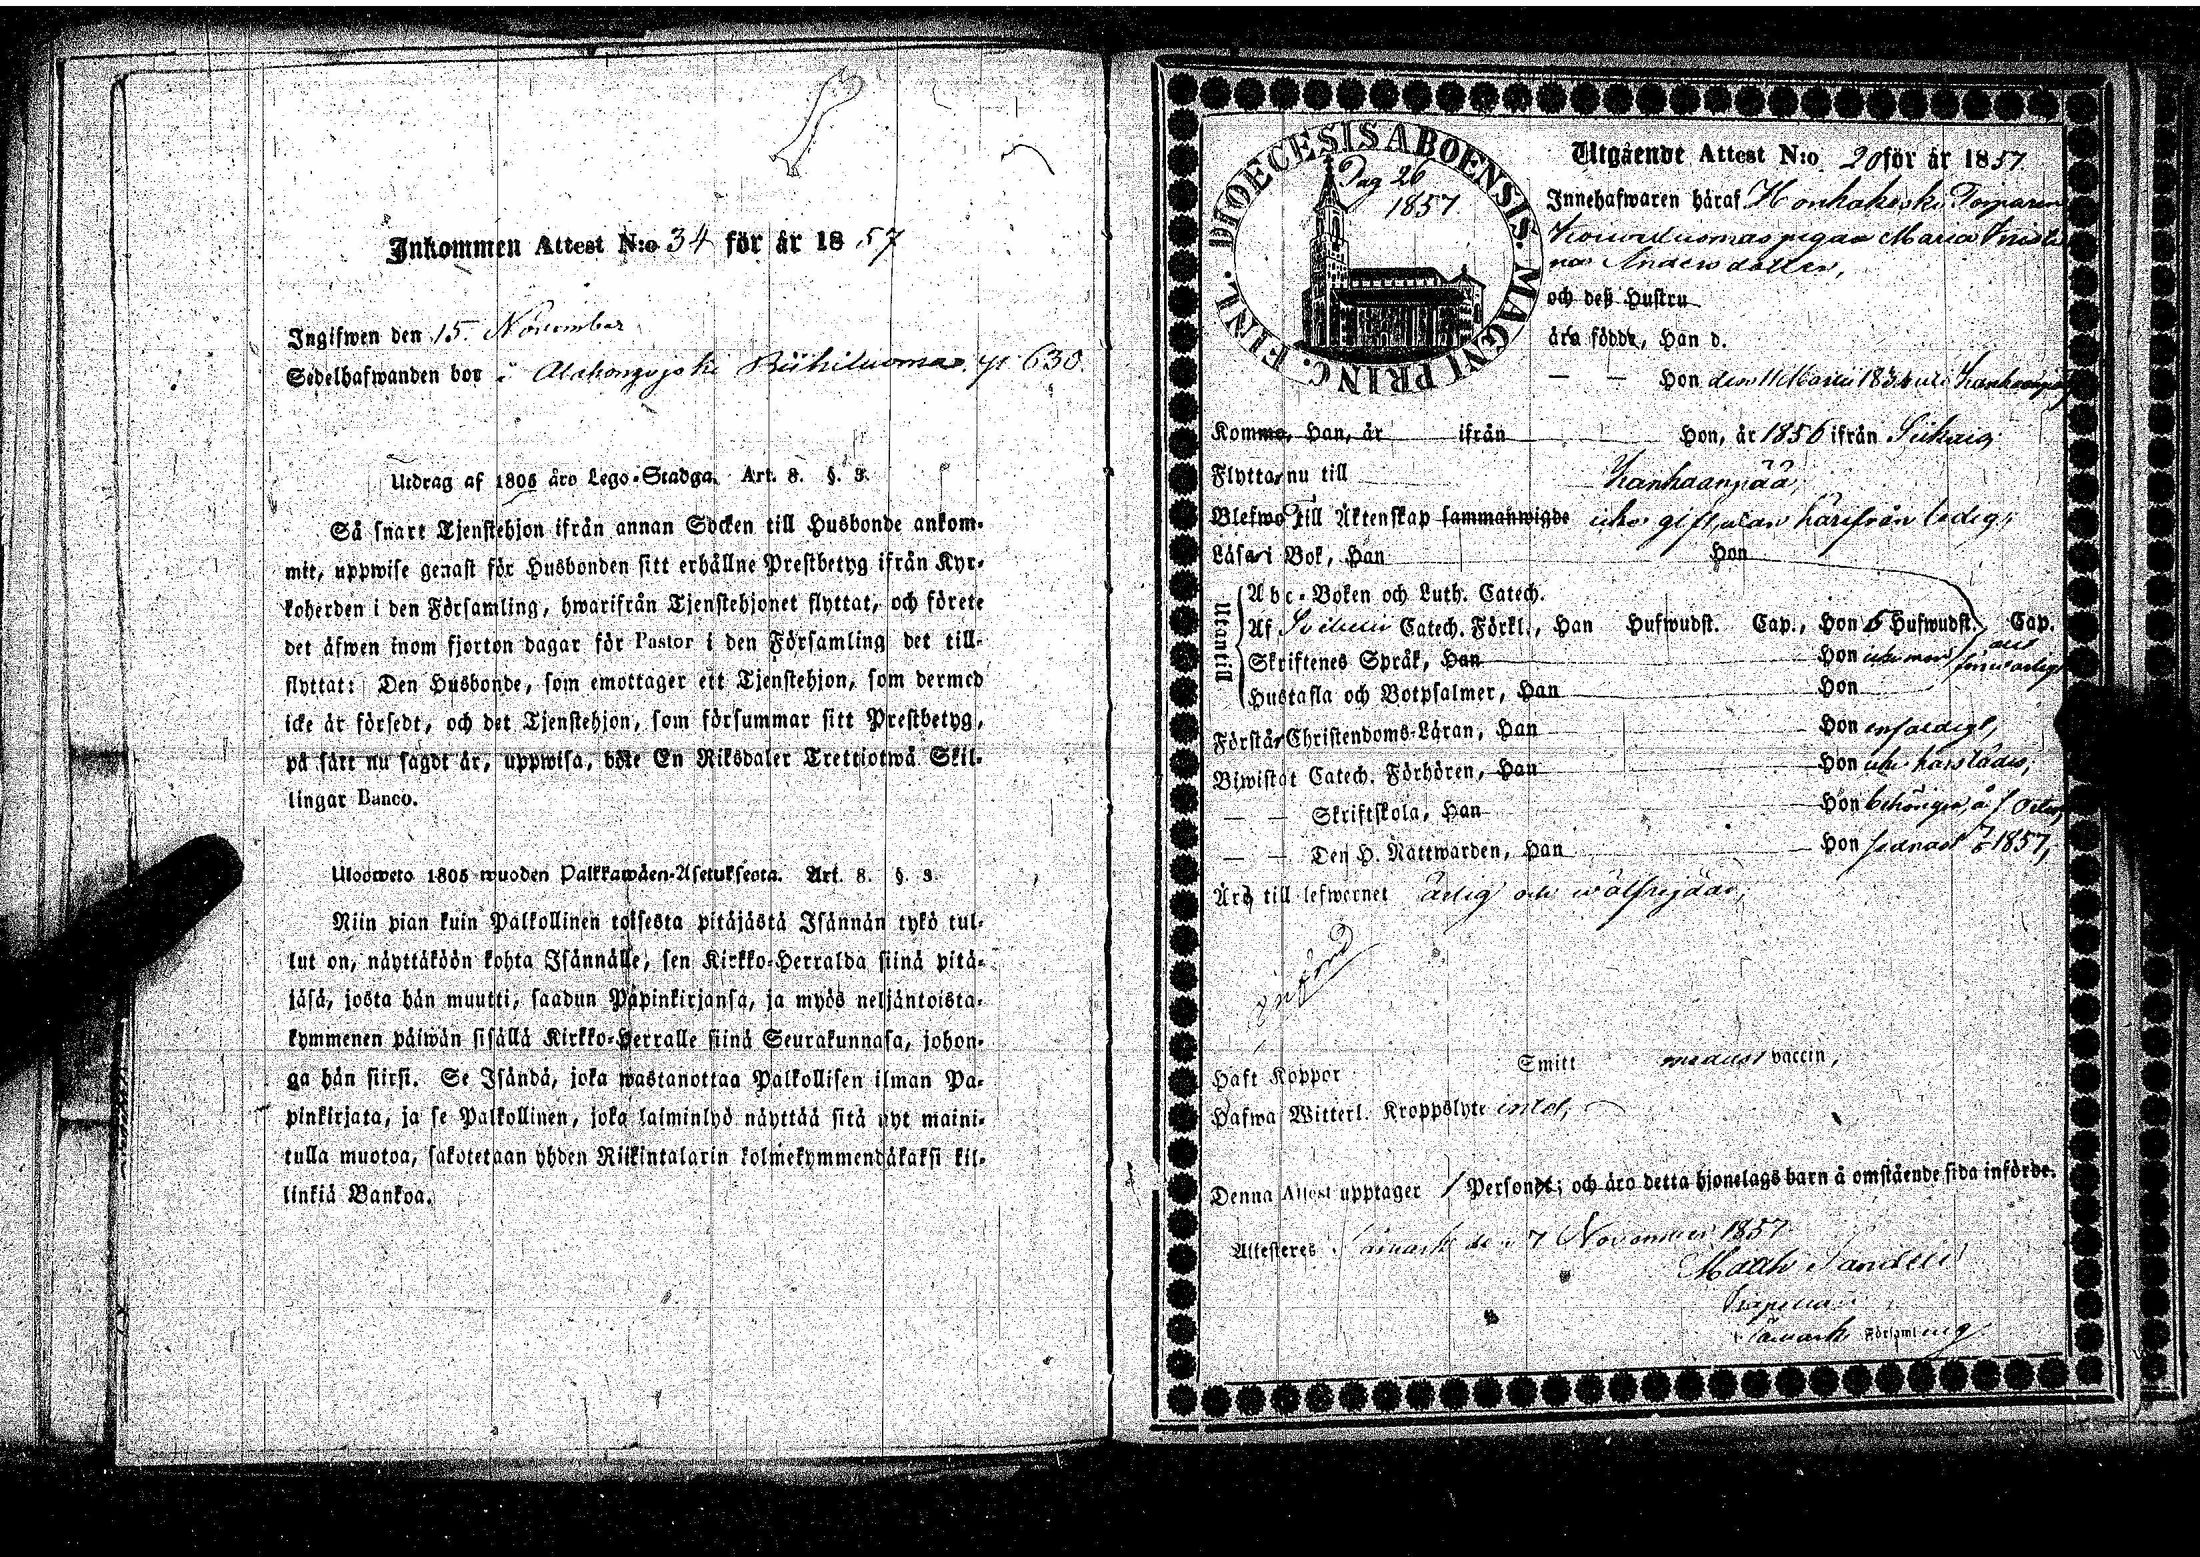 Inkommen Attest N:o 34 för år 1857
Ingifwen den 15 November
Sedelhafwanden bor i Alahongojoki Riihiluoma 630.
Utdrag af 1805 års Lego-Stadga. Art. 8. §. 3.
Så snart Tjenstehjon ifrån annan Socken till Husbonde ankom-
mit, uppwise genast för Husbonden sitt erhållne Prestbetyg ifrån Kyr-
koherden i den Församling, hwarifrån Tjenstehjonet flyttat, och förete
det äfwen inom fjorton dagar för Pastor i den Församling det till-
flyttat: Den Husbonde, som emottager ett Tjenstehjon, som dermed
icke är försedt, och det Tjenstehjon, som försummar sitt Prestbetyg,
på sätt nu sagdt är, uppwisa, böte En Riksdaler Trettiotwå Skil-
lingar Banco.
Ulosweto 1805 wuoden Palkkawäen-Asetuksesta. Art. 8. §. 3.
Niin pian kuin Palkollinen toisesta pitäjästä Isännän tykö tul-
lut on, näyttäköön kohta Isännälle, sen Kirkko-Herralda siinä pitä-
jäsä, josta hän muutti, saadun Papinkirjansa, ja myös neljäntoista-
kymmenen päiwän sisällä Kirkko-Herralle siinä Seurakunnasa, johon-
ga hän siirsi. Se Isändä, joka wastanottaa Palkollisen ilman Pa-
pinkirjata, ja se Palkollinen, joka laiminlyö näyttää sitä nyt maini-
tulla muotoa, sakotetaan yhden Riikintalarin kolmekymmendäkaksi kil-
linkiä Bankoa.
DIOECESIS ABOENSIS. MAGNI PRINC. FINL.
Pag 26
1857.
Utgående Attest N:o 20 för år 1857.
Innehafwaren häraf Honkakoski Torparen
pigan Maria
na Andersdotter,
och deß Hustru
ära födde, Han d.
— — Hon den 11 Martii i Kankaanpää
Komma, Han, år ifrån Hon, år 1856 ifrån Siikais,
Flytta, nu till Kankaanpää,
Blefwo till Äktenskap sammanwigde icke gift, utan härifrån ledig;
Läsa i Bok, Han Hon
Utantill
Abc-Boken och Luth. Catech.
Af Svebelii Catech. Förkl., Han Hufwudst. Cap., Hon 5 Hufwudst. Cap.
Skriftenes Språk, Han Hon
Hustafla och Botpsalmer, Han Hon
Förstår Christendoms-Läran, Han Hon enfaldigt,
Biwistat Catech. Förhören, Han Hon icke härstädes;
— — Skriftskola, Han Hon behörigen,
— — Den H. Nattwarden, Han Hon sednast 1857,
Äro till lefwernet ärlig och wälfrejdad;
Haft Koppor Smitt medelst vaccin,
Hafwa Witterl. Kroppslyte intet,
Denna Attest upptager 1 Person; och äro detta hjonelags barn å omstående sida införde.
Attesteres Påmark den 7 November 1857
Påmark Församling